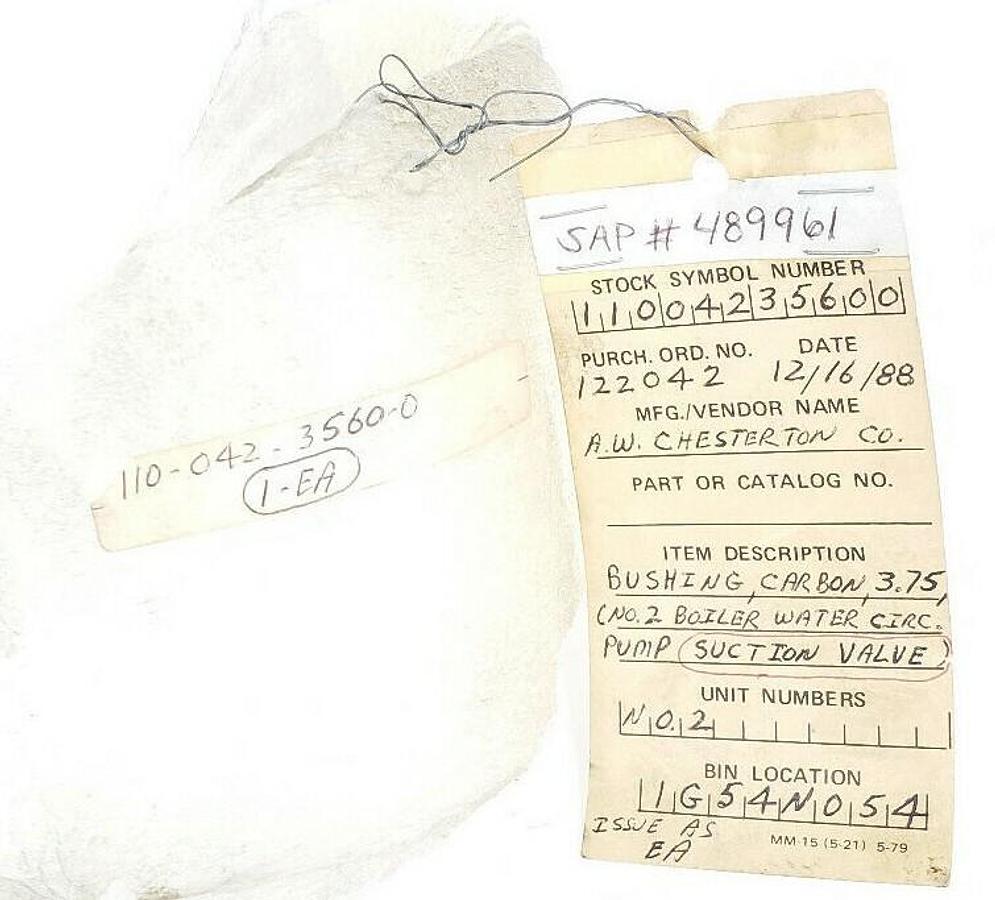 SAP # 489961
STOCK SYMBOL NUMBER
11004235600
PURCH. ORD. NO. DATE
122042 12/16/88
MFG./VENDOR NAME
A.W. CHESTERTON CO.
PART OR CATALOG NO.
ITEM DESCRIPTION
BUSHING, CARBON, 3.75,
(NO.2 BOILER WATER CIRC.
PUMP SUCTION VALVE)
UNIT NUMBERS
NO.2
BIN LOCATION
1G54N054
ISSUE AS
EA
MM-15 (5-21) 5-79
110-042-3560-0
1-EA